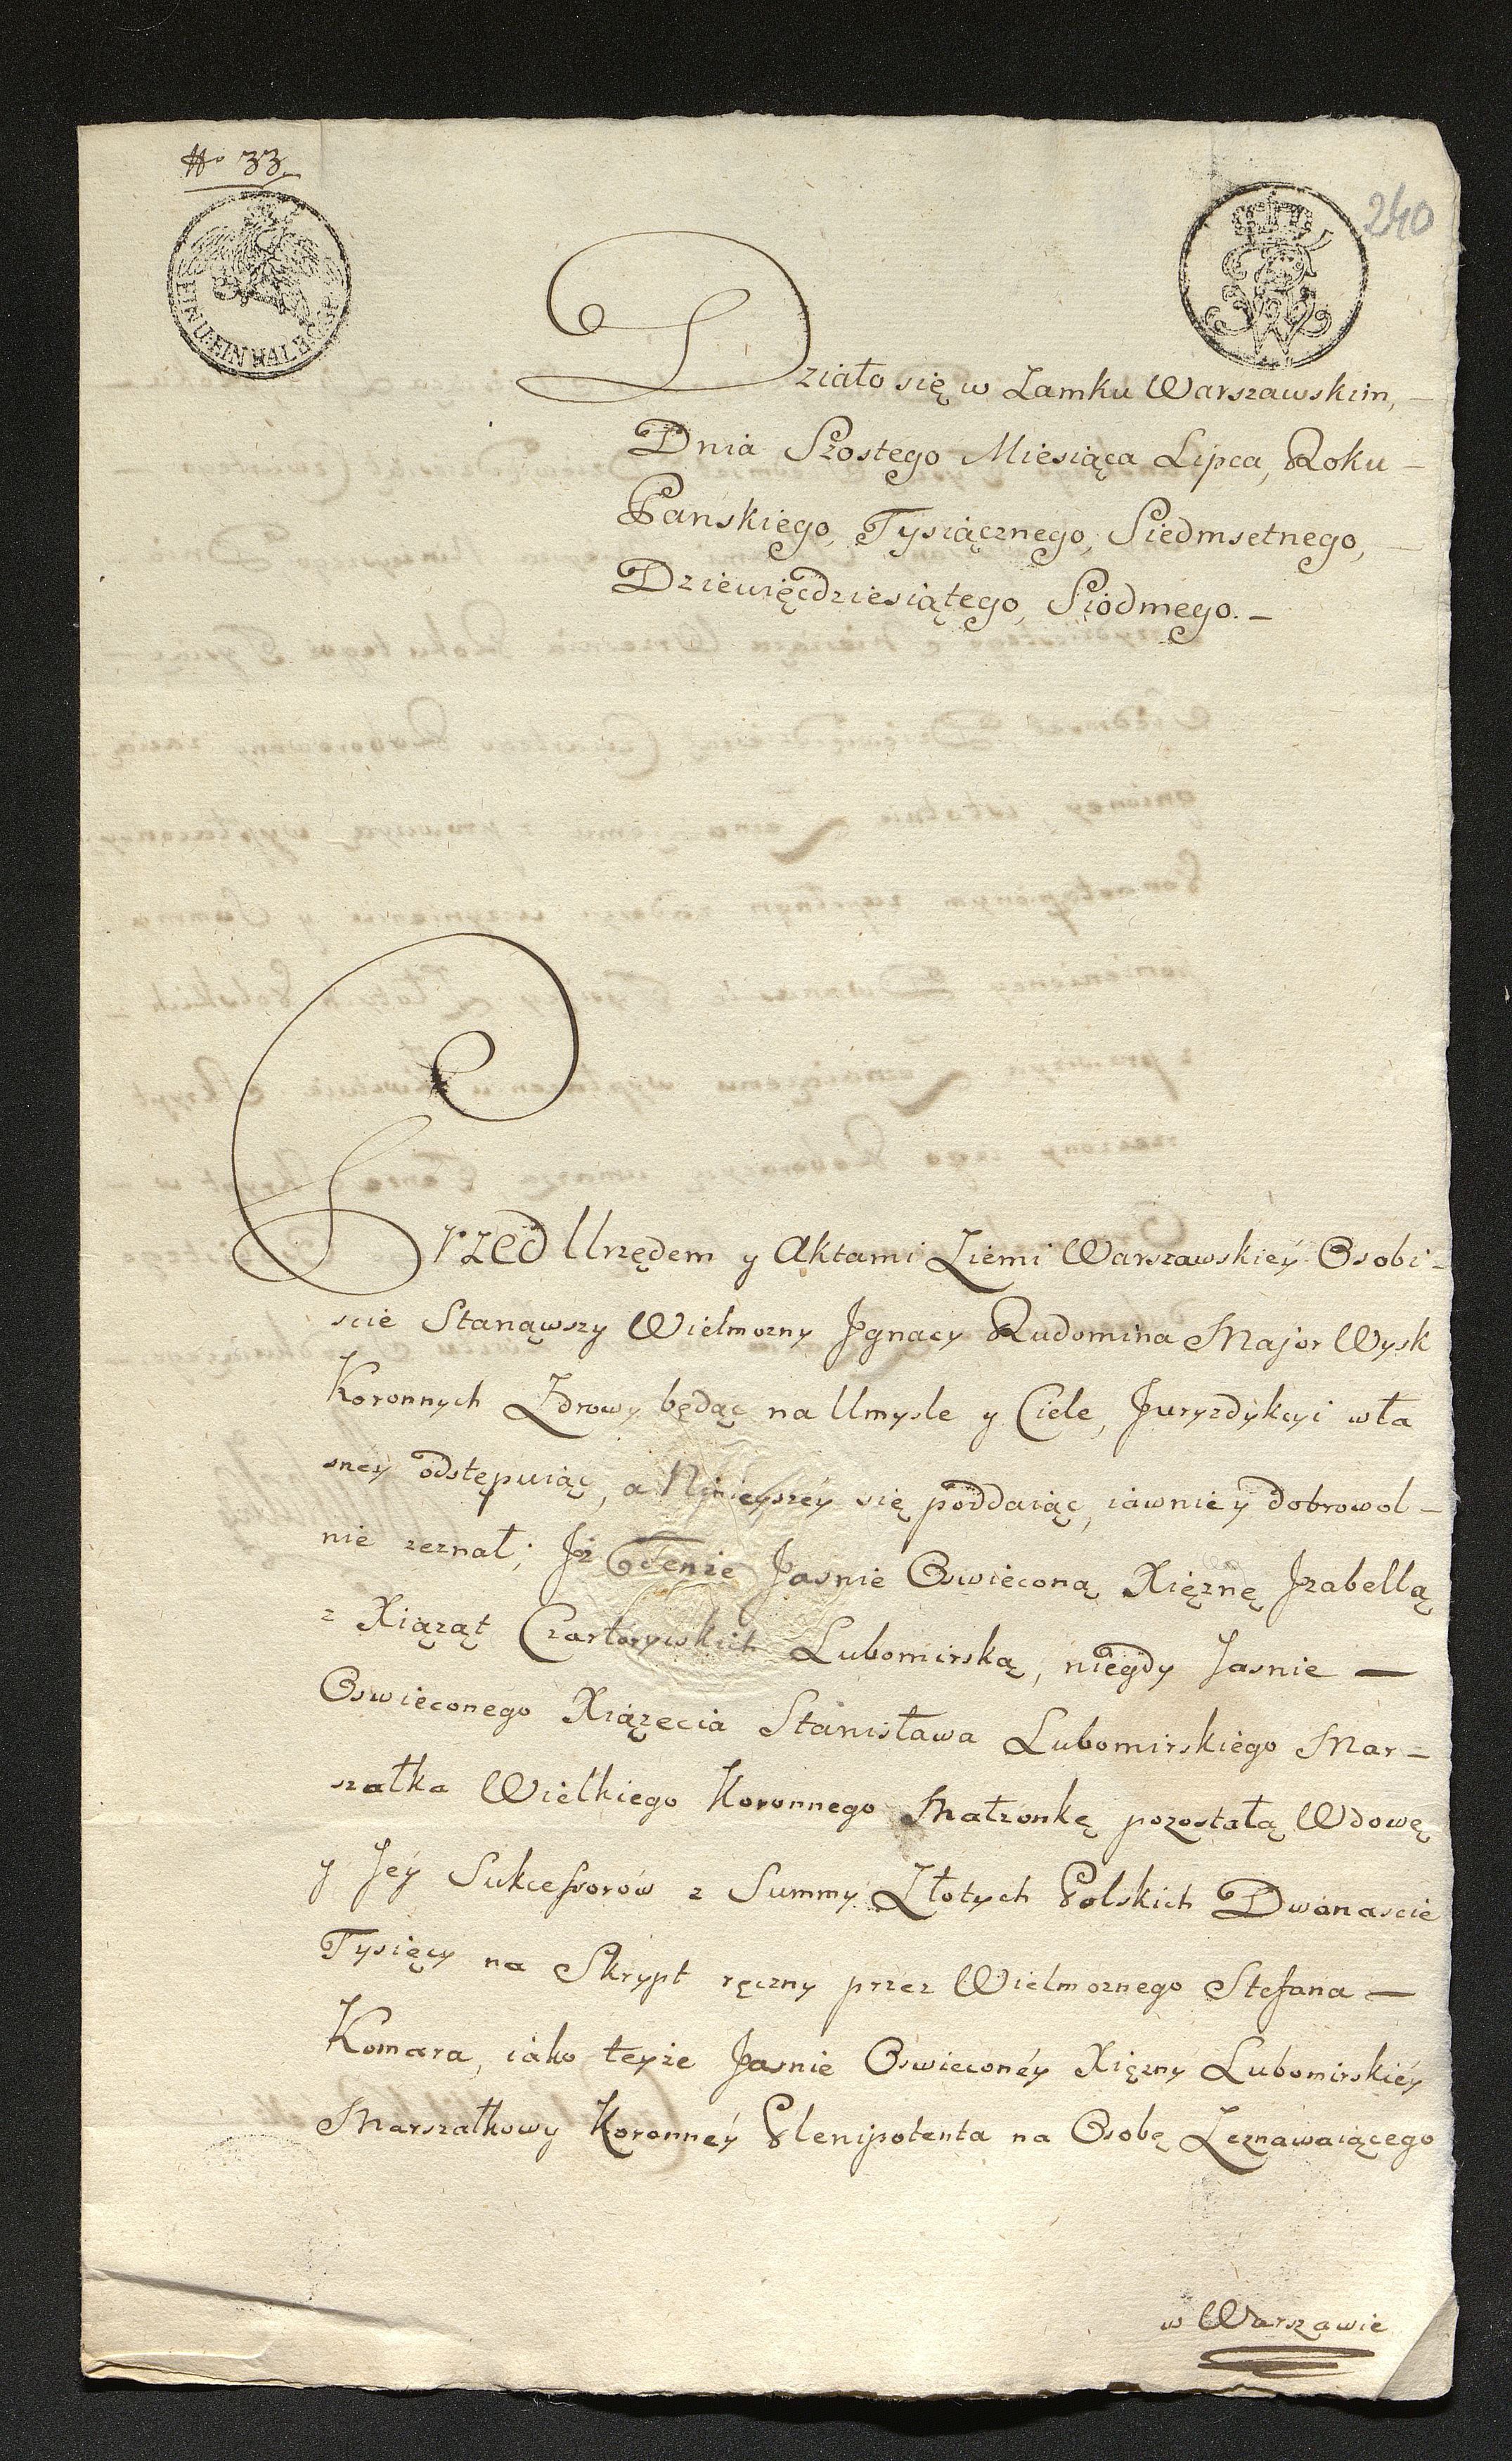 No 33.
240
EIN U. EIN HALB
Działo się w Zamku Warszawskim, —
Dnia Szostego Miesiąca Lipca, Roku —
Pańskiego, Tysiącznego, Siedmsetnego, —
Dziewięcdziesiątego, Siodmego. —
Przed Urzędem y Aktami Ziemi Warszawskiey Osobi-
scie Stanąwszy Wielmozny Jgnacy Rudomina Major Woysk
Koronnych Zdrowy będąc na Umysle y Ciele, Juryzdykcyi wła
sney odstępuiąc, a Ninieyszéy się poddaiąc, iawnie y dobrowol-
nie zeznał; Jż Tenże Jasnie Oswieconą Xięznę Jzabellą
z Xiąząt Czartoryskich Lubomirską, niegdy Jasnie —
Oswieconego Xiązęcia Stanisława Lubomirskiego Mar-
szałka Wielkiego Koronnego Małzonkę pozostałą Wdowę
y Jéy Sukcessorów z Summy Złotych Polskich Dwanascie
Tysięcy na Skrypt ręczny przez Wielmoznego Stefana —
Komara, iako teyże Jasnie Oswieconéy Xięzny Lubomirskiéy
Marszałkowy Koronnéy Plenipotenta na Osobę Zeznawaiącego
w Warszawie